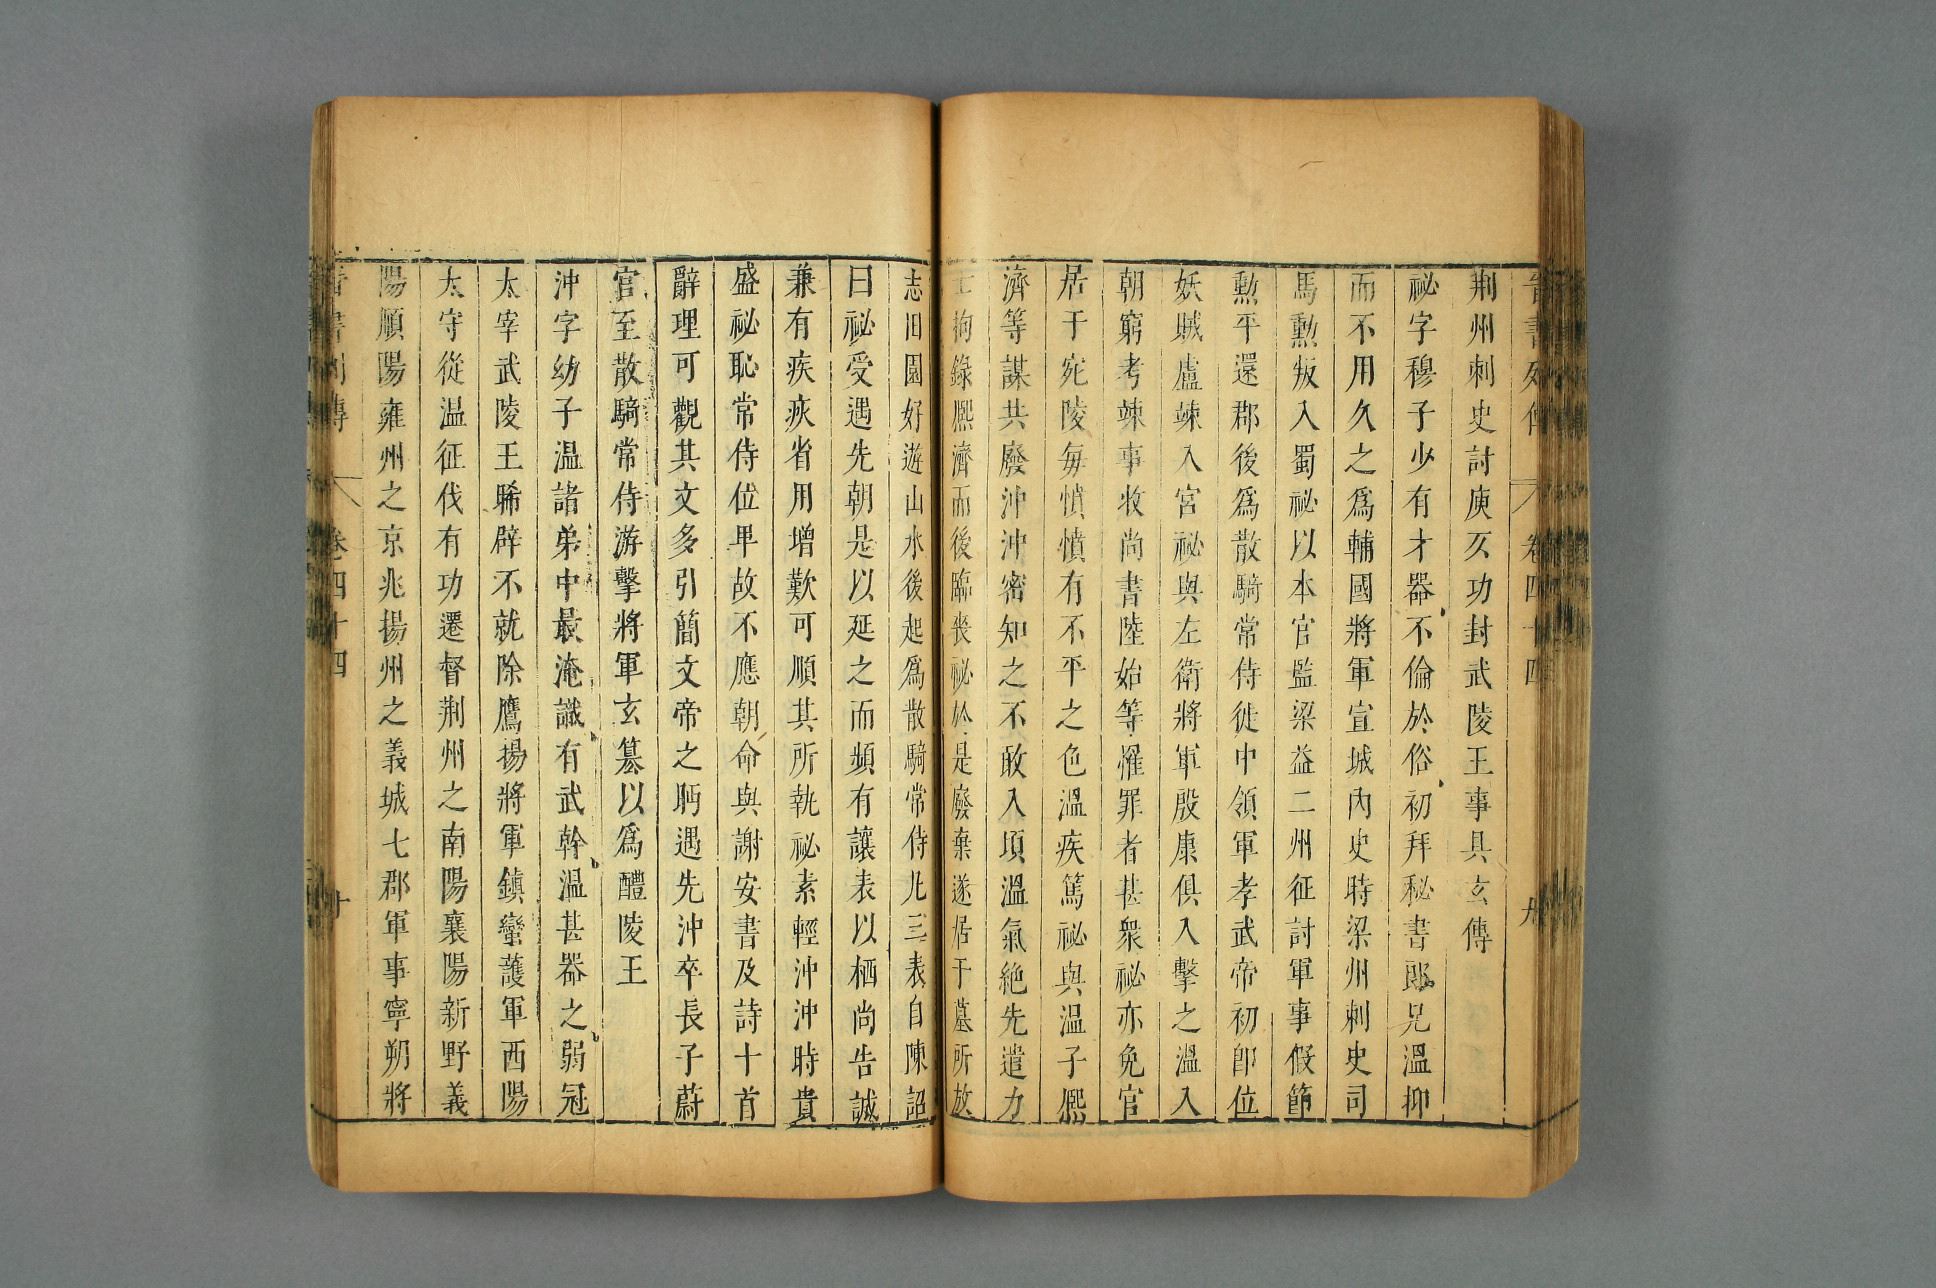 晉書列傳 卷四十四
荆州刺史討庾仄功封武陵王事具玄傳
祕字穆子少有才器不倫於俗初拜秘書郎兄溫抑
而不用久之爲輔國將軍宣城內史時梁州刺史司
馬勲叛入蜀祕以本官監梁益二州征討軍事假節
勲平還郡後爲散騎常侍徙中領軍孝武帝初卽位
妖賊盧竦入宮祕與左衛將軍殷康俱入擊之溫入
朝窮考竦事收尚書陸始等罹罪者甚衆祕亦免官
居于宛陵每憤憤有不平之色溫疾篤祕與温子熈
濟等謀共廢沖沖密知之不敢入項溫氣絶先遣力
士拘錄熈濟而後臨喪祕於是廢棄遂居于墓所放
志田園好遊山水後起爲散騎常侍凡三表自陳詔
曰祕受遇先朝是以延之而頻有讓表以栖尚告誠
兼有疾疢省用增歎可順其所執祕素輕沖沖時貴
盛祕恥常侍位卑故不應朝命與謝安書及詩十首
辭理可觀其文多引簡文帝之眄遇先沖卒長子蔚
官至散騎常侍游擊將軍玄篡以爲醴陵王
沖字幼子温諸弟中最淹識有武幹温甚器之弱冠
太宰武陵王晞辟不就除鷹揚將軍鎮蠻護軍西陽
太守從温征伐有功遷督荆州之南陽襄陽新野義
陽順陽雍州之京兆揚州之義城七郡軍事寧朔將
晉書列傳 卷四十四 十